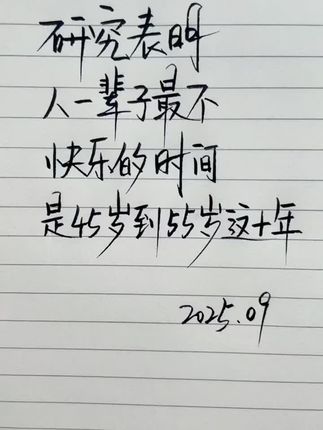 研究表明
人一辈子最不
快乐的时间
是45岁到55岁这十年
2025.09